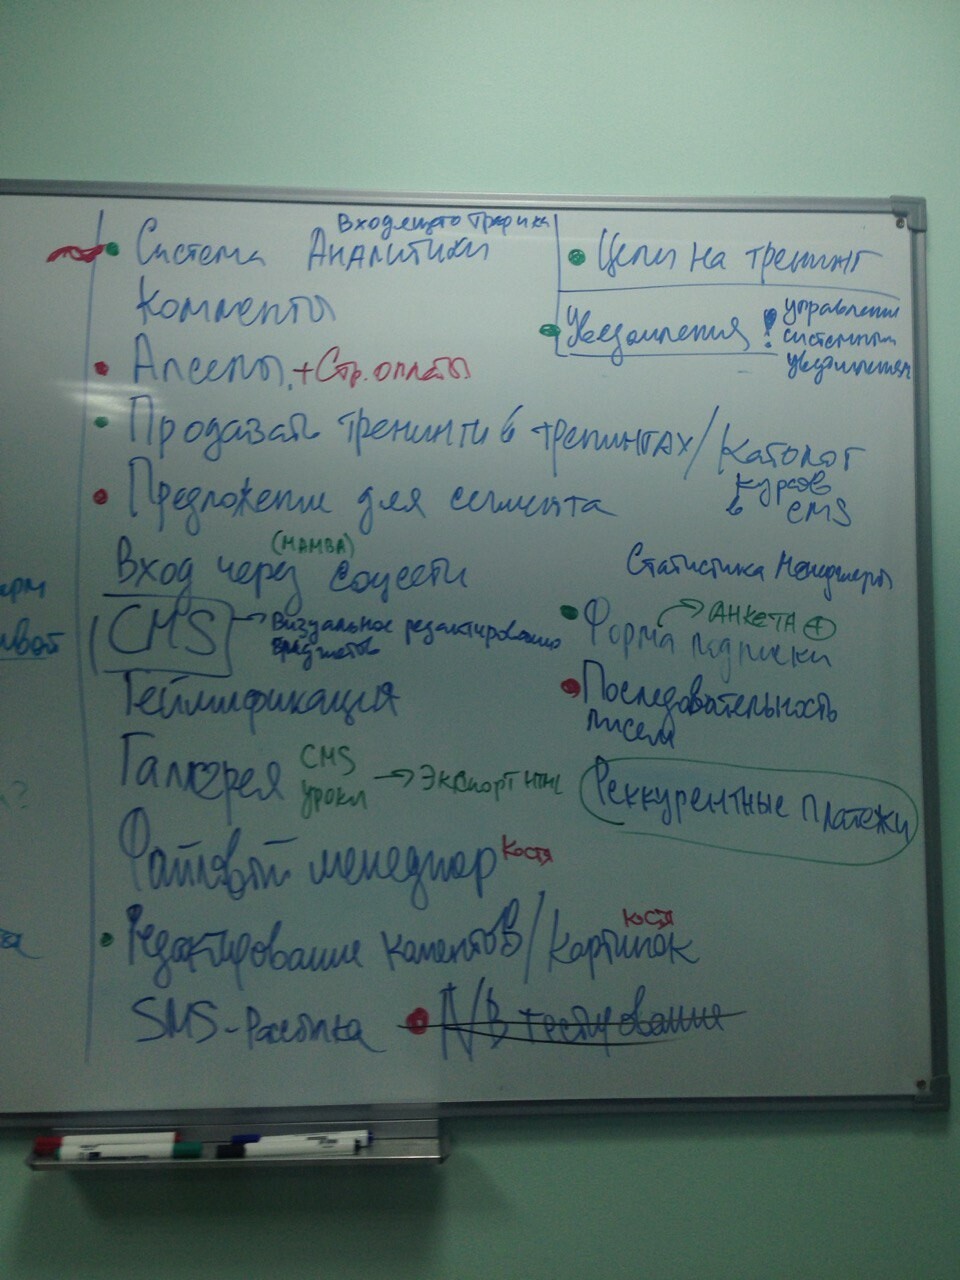 Входящего Трафика
Система Аналитики
Комменты
Апселы + Стр. оплаты
Продавать тренинги в тренингах / Каталог
курсов
в CMS
Предложение для сегмента
Вход через соцсети
(МАМВА)
CMS → Визуальное редактирование
Геймификация
Галлерея CMS
уроки → Экспорт HTML
Файловый менеджер Костя
Редактирование комментов / Картинок
Костя
SMS-Рассылка
A/B тестирование
Цели на тренинг
Уведомления !
управление
системными
уведомлениями
Статистика Менеджеры
Форма подписки
→ АНКЕТА +
Последовательность
писем
Реккурентные платежи